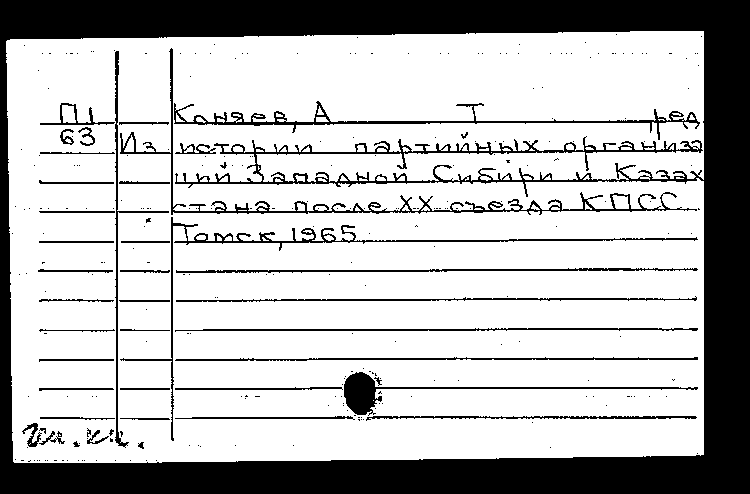 П1 Коняев, А Т ,ред
63 Из истории партийных организа
ций Западной Сибири и Казах
стана после XX съезда КПСС
Томск, 1965